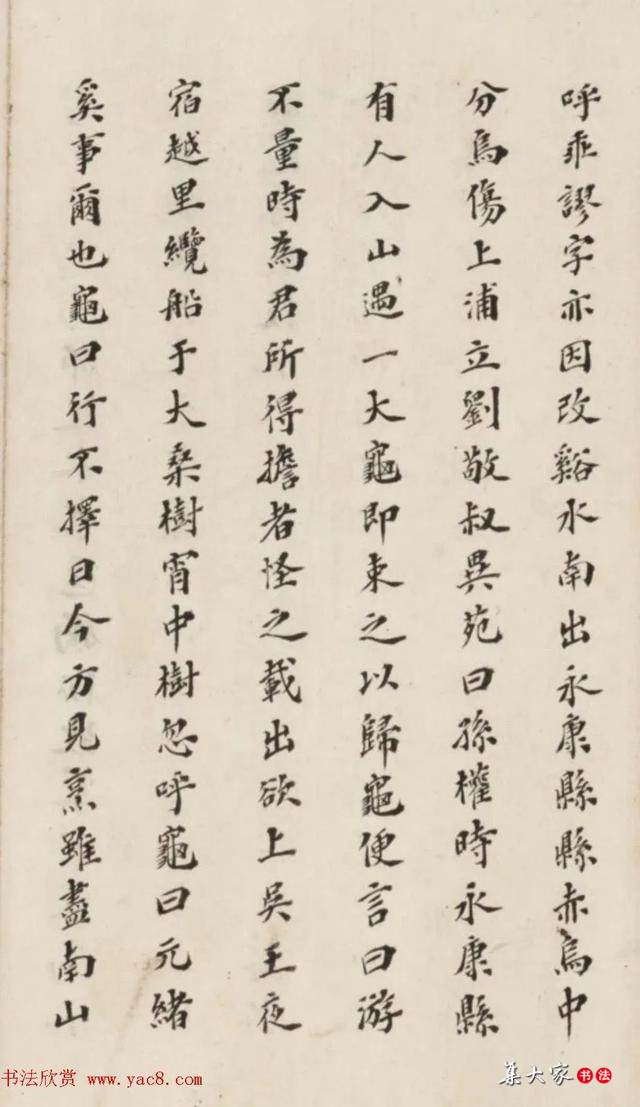 呼乖謬字亦因改谿水南出永康縣縣赤烏中
分烏傷上浦立劉敬叔異苑曰孫權時永康縣
有人入山遇一大龜即束之以歸龜便言曰游
不量時為君所得擔者怪之載出欲上吳王夜
宿越里纜船于大桑樹宵中樹忽呼龜曰元緒
奚事爾也龜曰行不擇日今方見烹雖盡南山
书法欣赏 www.yac8.com
集大家书法